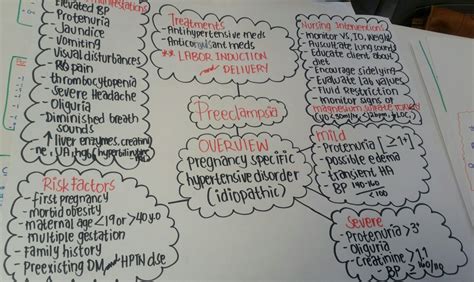 Manifestations
Elevated BP
- Protenuria
- Jaundice
- Vomiting
- Visual disturbances
- RQ pain
- thrombocytopenia
- Severe Headache
- Oliguria
- Diminished breath
sounds
↑ liver enzymes, creatinine
Treatments
- Antihypertensive meds
- Anticonvulsant meds
** LABOR INDUCTION
and DELIVERY
Preeclampsia
OVERVIEW
pregnancy specific
hypertensive disorder
(idiopathic)
Nursing Interventions
- Monitor VS, I/O, Weight
- Auscultate lung sounds
- Educate client about
diet
- Encourage sidelying
- Evaluate lab values
- Fluid Restriction
- Monitor signs of
magnesium sulfate toxicity
mild
- Protenuria [≥1+]
- possible edema
- transient HA
- BP 140-160
<100
Severe
- Protenuria >3+
- Oliguria
- Creatinine >1.1
- BP ≥ 160/110
Risk Factors
- first pregnancy
- morbid obesity
- maternal age <19 or >40 yo
- multiple gestation
- Family history
- Preexisting DM and HPTN dse